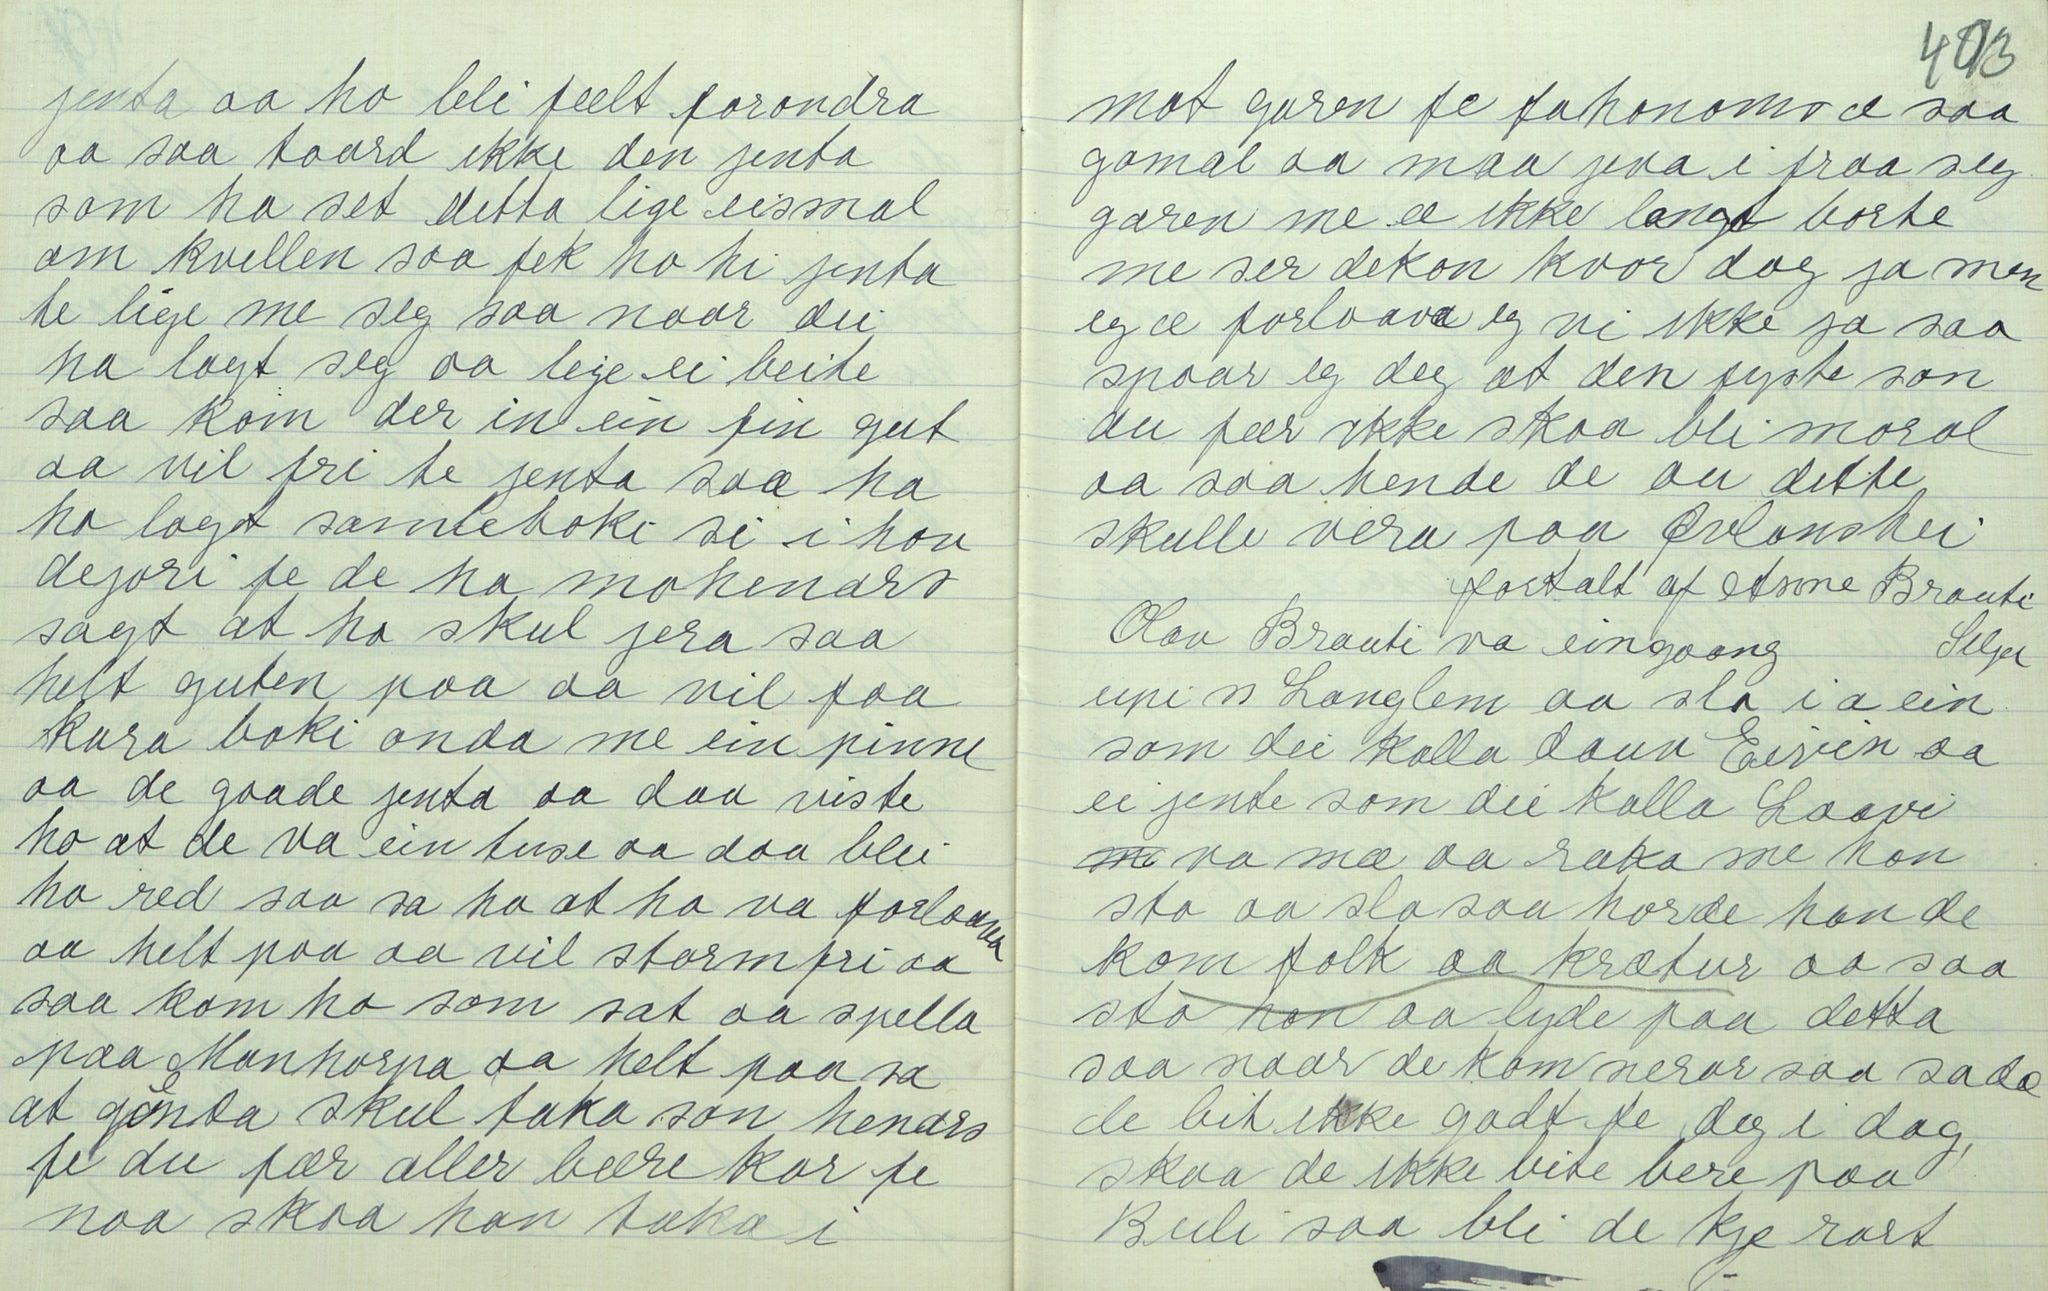 jenta oa ho bli fælt forondra
oa saa taard ikke den jenta
som ha set detta lige eismal
om kvellen saa fek ho hi jenta
te lige me seg saa naar dei
ha lagt seg oa lege ei beite
saa kom der in ein fin gut
oa vil fri te jenta saa ha
ho lagt samleboki si i hou
degjori fe de ha mohenars
sagt at ho skul jera saa
helt guten paa oa vil faa
kara boki onda me ein pinne
oa de gaade jenta oa daa viste
ho at de va ein tuse oa daa blei
ho red saa sa ho at ho va forloava
oa helt paa oa vil storm fri oa
saa kom ho som sat oa spella
paa Monhorpa oa helt paa sa
at gjenta skul taka son henars
fe du fær aller bære kar fe
naa skaa han taka i
403
mot garen fe fahonoms æ saa
gamal oa maa jeva i fraa seg
garen me æ ikke langt borte
me ser dekon kvor dag ja men
eg æ forloava eg vi ikke ja saa
spaar eg deg at den fyste son
du fær ikke skaa bli moral
oa saa hende de ou dette
skulle vera paa Øvlanshei
fortalt af Asne Brauti
Olav Brauti va eingoang Seljer
upi n Langlem oa sla i a ein
som dei kalla daun Eivin oa
ei jente som dei kalla Laavi
va mæ oa raka me han
sto oa sla saa horde han de
kom folk oa krætur oa saa
sto han oa lyde paa detta
saa naar de kom nerar saa sa dæ
de bit ikke godt fe deg i dag,
skaa de ikke bite bere paa
Buli saa bli de kje rart